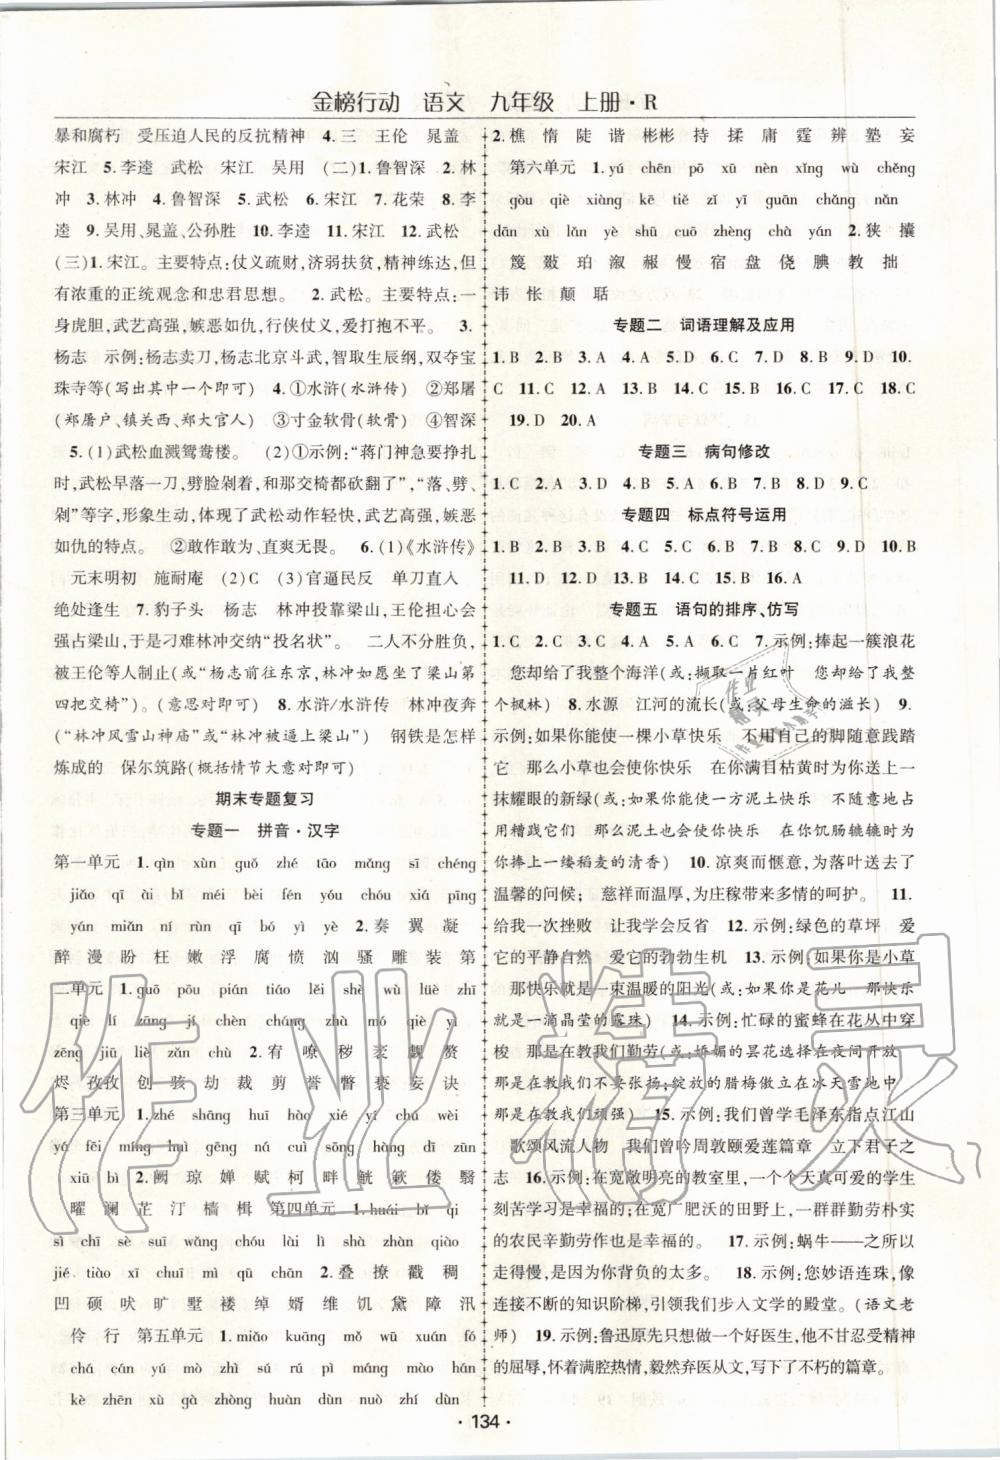 金榜行动 语文 九年级 上册·R
暴和腐朽 受压迫人民的反抗精神 4.三 王伦 晁盖
宋江 5.李逵 武松 宋江 吴用 (二)1.鲁智深 2.林
冲 3.林冲 4.鲁智深 5.武松 6.宋江 7.花荣 8.李
逵 9.吴用、晁盖、公孙胜 10.李逵 11.宋江 12.武松
(三)1.宋江。主要特点:仗义疏财,济弱扶贫,精神练达,但
有浓重的正统观念和忠君思想。 2.武松。主要特点:一
身虎胆,武艺高强,嫉恶如仇,行侠仗义,爱打抱不平。 3.
杨志 示例:杨志卖刀,杨志北京斗武,智取生辰纲,双夺宝
珠寺等(写出其中一个即可) 4.①水浒(水浒传) ②郑屠
(郑屠户、镇关西、郑大官人) ③寸金软骨(软骨) ④智深
5.(1)武松血溅鸳鸯楼。 (2)①示例:“蒋门神急要挣扎
时,武松早落一刀,劈脸剁着,和那交椅都砍翻了”,“落、劈、
剁”等字,形象生动,体现了武松动作轻快,武艺高强,嫉恶
如仇的特点。 ②敢作敢为、直爽无畏。 6.(1)《水浒传》
元末明初 施耐庵 (2)C (3)官逼民反 单刀直入
绝处逢生 7.豹子头 杨志 林冲投靠梁山,王伦担心会
强占梁山,于是刁难林冲交纳“投名状”。 二人不分胜负,
被王伦等人制止(或:杨志前往东京,林冲如愿坐了梁山第
四把交椅”)。(意思对即可) 8.水浒/水浒传 林冲夜奔
(“林冲风雪山神庙”或“林冲被逼上梁山”) 钢铁是怎样
炼成的 保尔筑路(概括情节大意对即可)
期末专题复习
专题一 拼音·汉字
第一单元 1.qìn xùn guǒ zhé tāo mǎng sī chéng
jiǎo qī ài bǐ méi bèi fén yóu chóu xiá pīng
yán miǎn ní rùn qī bó yì yè 2.奏 翼 凝
醉 漫 盼 枉 嫩 浮 腐 愤 汹 骚 雕 装 第
二单元 1.guō pōu pián gài nì xiè líng lüè zhī
qiè lí zāng jí chèn cháng xiá mò qiè yì
zēng jiū liè zǎn chù 2.宥 嘹 秽 妄 觊 赘
烬 孜孜 创 骇 劫 裁 剪 誉 瞥 亵 妄 诀
第三单元 1.zhé shāng huī zhài xié yí chá wèi
yá fēi míng huì gēng ná cuì sōng hàng dī zūn
xiū bì 2.阙 琼 婵 赋 柯 畔 觥 簌 偻 翳
曜 澜 芷 汀 樯 楫 第四单元 1.huái bǐ qi
sì chì sè suī wǎng chóu lài lì sè zhāng qiāo
jié tiào xī chuī mì cāng 2.叠 撩 戳 稠
凹 硕 吠 旷 墅 褛 绰 婿 维 饥 黛 障 汛
伶 行 第五单元 1.miǎo kuāng mó wū cuō fó
chá cán yú mò zhì sú rì pì máng mán chì
kè zhēn xū gà zhòng huàn dùn nuò zhí dùn
2.樵 惰 陡 谐 彬彬 持 揉 庸 霆 辨 塾 妄
第六单元 1.yú chēn pō xū nèn xǐng wù chěng
gòu qiè xiáng kē tiě zī yī guān chǎng nǎn
dān xù lǎn yè shū cuō zhèng chà yán 2.狭 攮
篾 敠 珀 溆 赧 慢 宿 盘 侥 腆 教 拙
讳 怅 颠 聒
专题二 词语理解及应用
1.B 2.B 3.A 4.A 5.A 6.C 7.D 8.B 9.D 10.
C 11.C 12.A 13.B 14.C 15.B 16.C 17.C 18.C
19.D 20.A
专题三 病句修改
1.C 2.A 3.D 4.D 5.D 6.D 7.A 8.B 9.C 10.C
专题四 标点符号运用
1.B 2.B 3.A 4.B 5.C 6.B 7.B 8.C 9.D 10.B
11.D 12.A 13.B 14.B 15.D 16.A
专题五 语句的排序、仿写
1.C 2.C 3.C 4.A 5.A 6.C 7.示例:捧起一簇浪花
您却给了我整个海洋(或:撷取一片红叶 您却给了我
整个枫林) 8.水源 江河的流长(或:父母生命的滋长) 9.
示例:如果你能使一棵小草快乐 不用自己的脚随意践踏
它 那么小草也会使你快乐 在你的满目枯黄时为你送上一
抹耀眼的新绿(或:如果你能使一方泥土快乐 不随意占
用糟践它们 那么泥土也会使你快乐 在你饥肠辘辘时为
你捧上一缕稻麦的清香) 10.凉爽而惬意,为落叶送去了
温馨的问候; 慈祥而温厚,为庄稼带来多情的呵护。 11.
给我一次挫败 让我学会反省 12.示例:绿色的草坪 爱
它的宁静自然 爱它的勃勃生机 13.示例:如果你是小草
那快乐就是一束温暖的阳光(或:如果你是花儿 那快乐
就是一滴晶莹的露珠) 14.示例:忙碌的蜜蜂在花丛中穿
梭 那是在教我们勤劳(或:娇媚的昙花选择在夜间开放
那是在教我们不要张扬;绽放的腊梅傲立在冰天雪地中
那是在教我们顽强) 15.示例:我们曾学毛泽东指点江山
歌颂风流人物 我们曾吟周敦颐爱莲篇章 立下君子之
志 16.示例:在宽敞明亮的教室里,一个个天真可爱的学生
刻苦学习是幸福的;在宽广肥沃的田野上,一群群勤劳朴实
的农民辛勤劳作也是幸福的。 17.示例:蜗牛——之所以
走得慢,是因为你背负的太多。 18.示例:您妙语连珠,像
连接不断的知识阶梯,引导我们步入文学的殿堂。(语文老
师) 19.示例:鲁迅原先只想做一个好医生,他不甘忍受精神
的屈辱,怀着满腔热情,毅然弃医从文,写下了不朽的篇章。
·134·
作业精灵